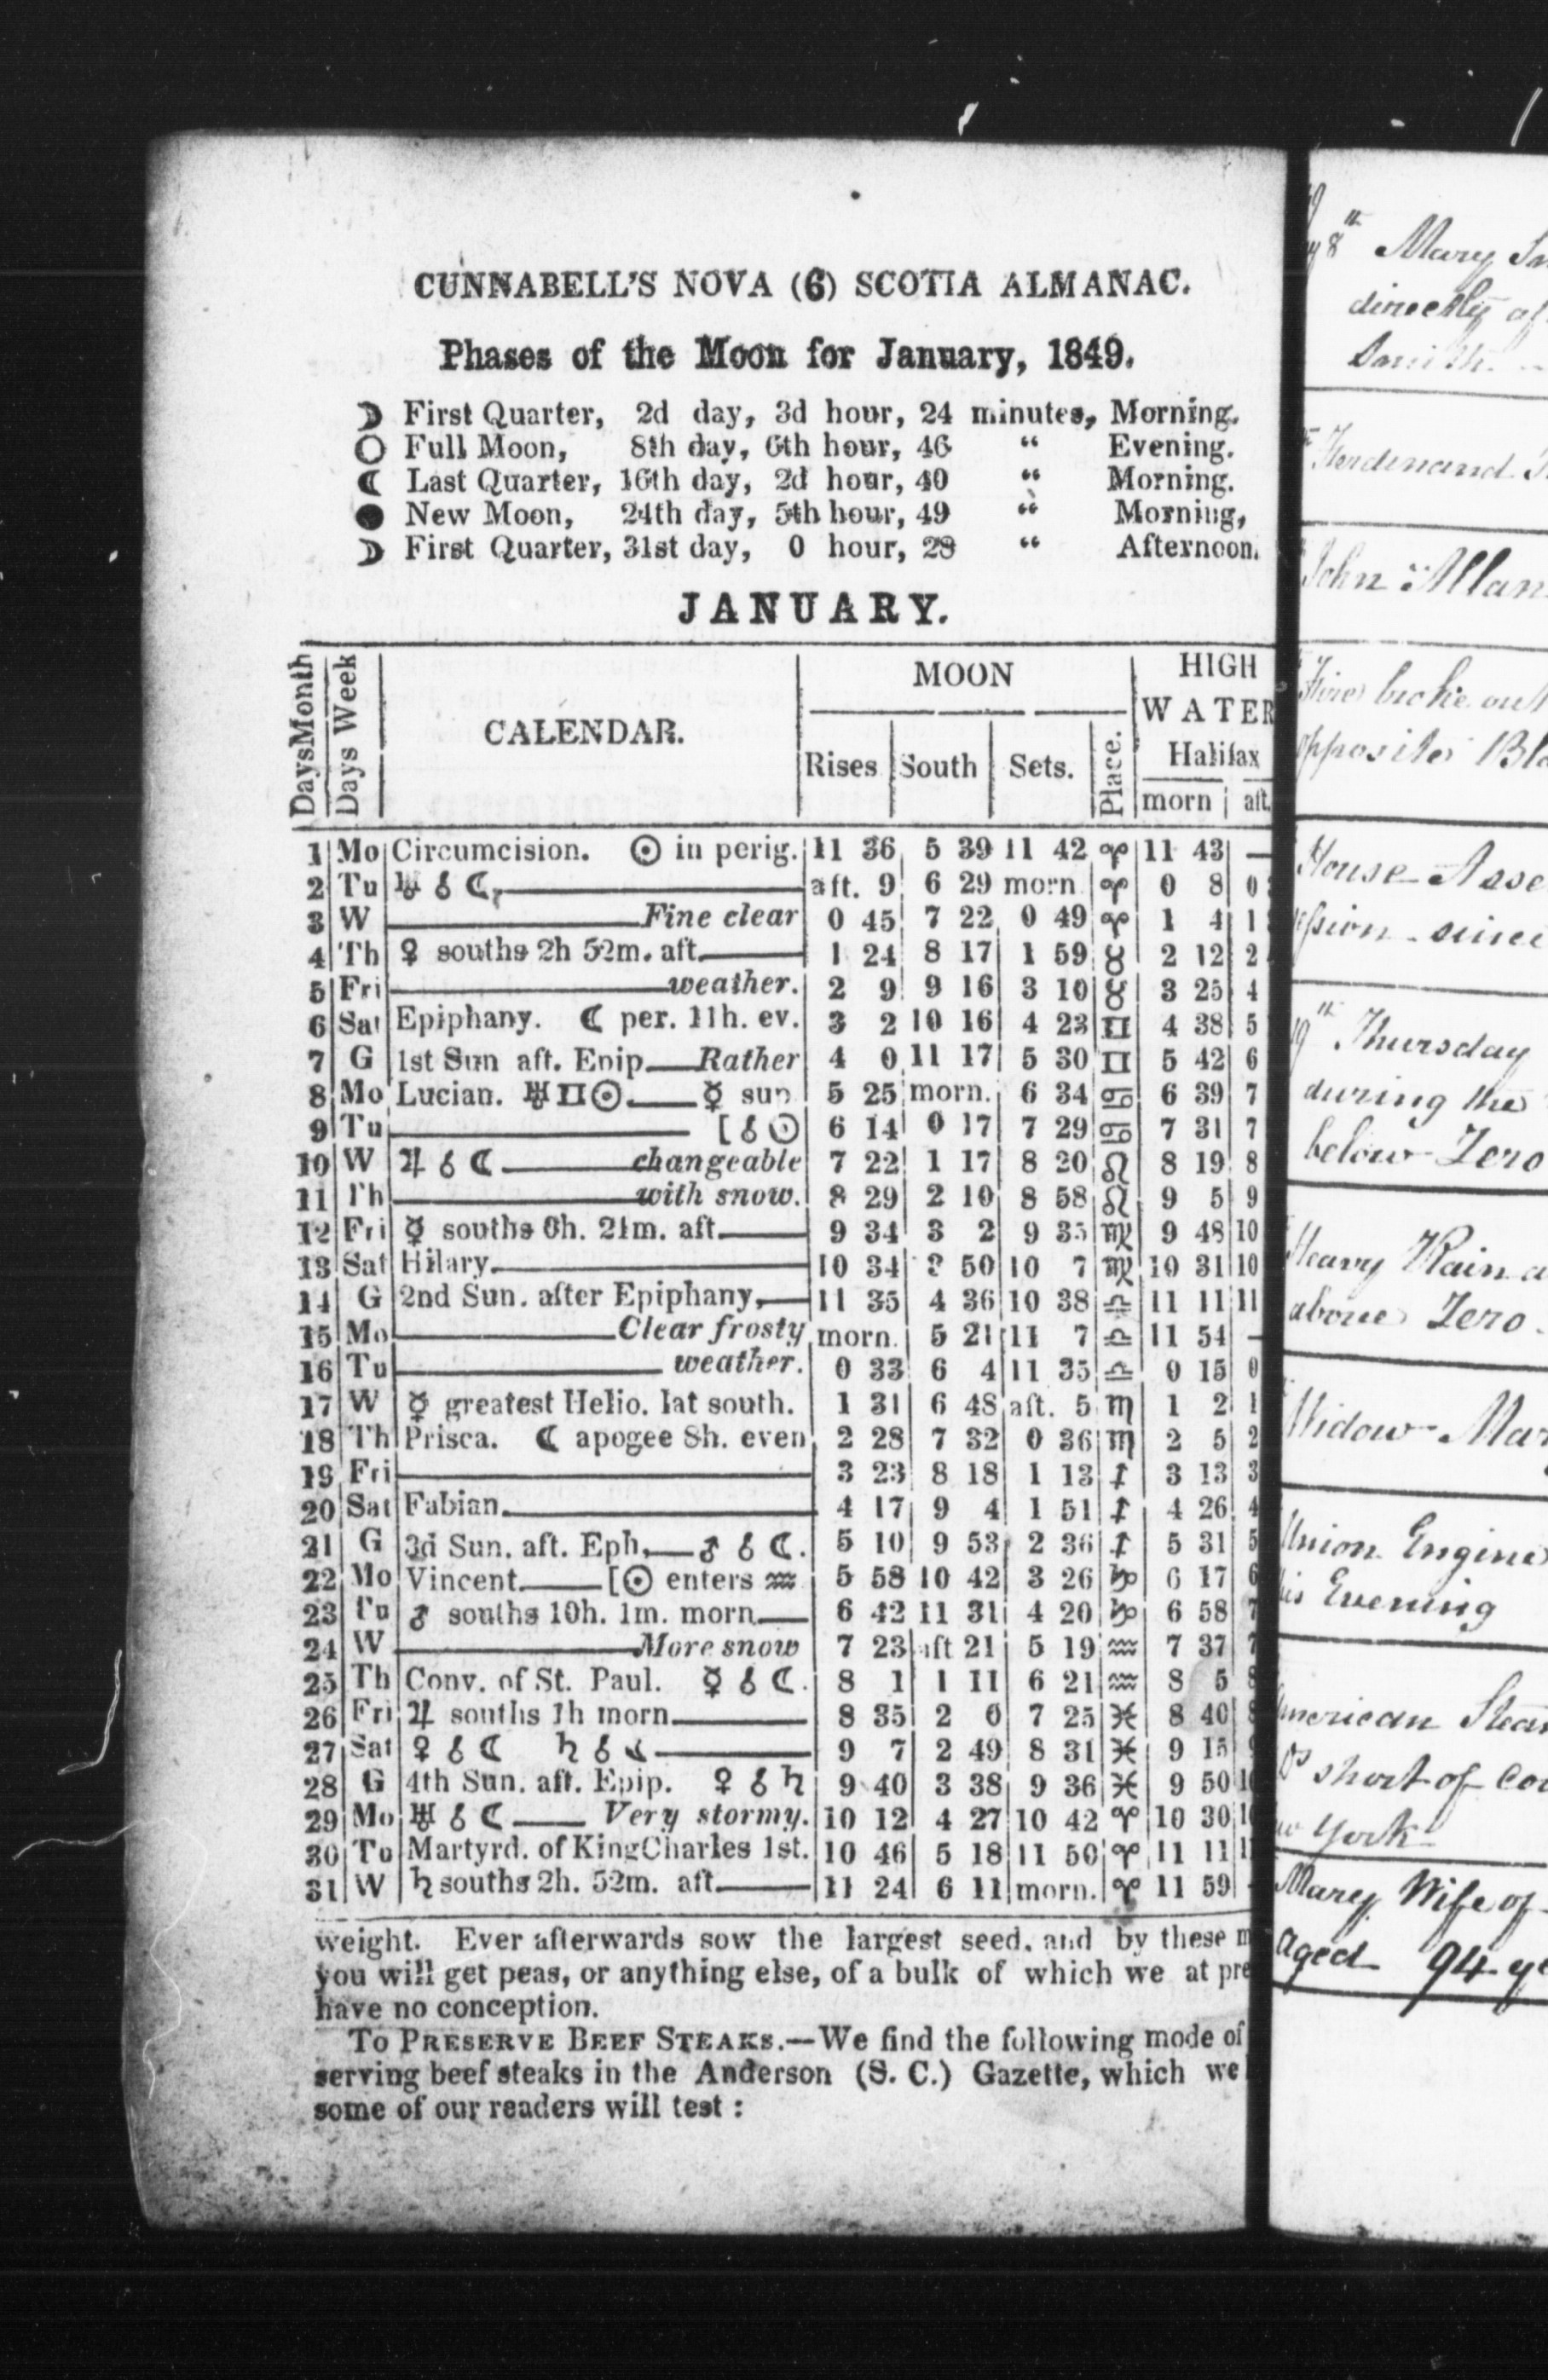 CUNNABELL'S NOVA (6) SCOTIA ALMANAC.
Phases of the Moon for January, 1849.
☽ First Quarter, 2d day, 3d hour, 24 minutes, Morning.
○ Full Moon, 8th day, 6th hour, 46 “ Evening.
☾ Last Quarter, 16th day, 2d hour, 40 “ Morning.
● New Moon, 24th day, 5th hour, 49 “ Morning,
☽ First Quarter, 31st day, 0 hour, 28 “ Afternoon.
JANUARY.
DaysMonth Days Week CALENDAR. MOON HIGH WATER
Rises South Sets. Place. Halifax
morn aft.
1 Mo Circumcision. ☉ in perig. 11 36 5 39 11 42 ♈ 11 43 —
2 Tu ♅ ☌ ☾, aft. 9 6 29 morn ♈ 0 8 0
3 W Fine clear 0 45 7 22 0 49 ♈ 1 4 1
4 Th ♀ souths 2h 52m. aft. 1 24 8 17 1 59 ♉ 2 12 2
5 Fri weather. 2 9 9 16 3 10 ♉ 3 25 4
6 Sat Epiphany. ☾ per. 11h. ev. 3 2 10 16 4 23 ♊ 4 38 5
7 G 1st Sun aft. Epip. Rather 4 0 11 17 5 30 ♊ 5 42 6
8 Mo Lucian. ♅ ♊ ☉. ☿ sup 5 25 morn. 6 34 ♋ 6 39 7
9 Tu [☌ ☉ 6 14 0 17 7 29 ♋ 7 31 7
10 W ♃ ☌ ☾ changeable 7 22 1 17 8 20 ♌ 8 19 8
11 Th with snow. 8 29 2 10 8 58 ♌ 9 5 9
12 Fri ☿ souths 0h. 21m. aft. 9 34 3 2 9 35 ♍ 9 48 10
13 Sat Hilary. 10 34 3 50 10 7 ♍ 10 31 10
14 G 2nd Sun. after Epiphany, 11 35 4 36 10 38 ♎ 11 11 11
15 Mo Clear frosty morn. 5 21 11 7 ♎ 11 54 —
16 Tu weather. 0 33 6 4 11 35 ♎ 0 15 0
17 W ☿ greatest Helio. lat south. 1 31 6 48 aft. 5 ♏ 1 2 1
18 Th Prisca. ☾ apogee 8h. even 2 28 7 32 0 36 ♏ 2 5 2
19 Fri 3 23 8 18 1 13 ♐ 3 13 3
20 Sat Fabian. 4 17 9 4 1 51 ♐ 4 26 4
21 G 3d Sun. aft. Eph, ♂ ☌ ☾. 5 10 9 53 2 36 ♐ 5 31 5
22 Mo Vincent. [☉ enters ♒ 5 58 10 42 3 26 ♑ 6 17 6
23 Tu ♂ souths 10h. 1m. morn. 6 42 11 31 4 20 ♑ 6 58 7
24 W More snow 7 23 aft 21 5 19 ♒ 7 37 7
25 Th Conv. of St. Paul. ☿ ☌ ☾. 8 1 1 11 6 21 ♒ 8 5 8
26 Fri ♃ souths 1h morn. 8 35 2 0 7 25 ♓ 8 40 8
27 Sat ♀ ☌ ☾ ♄ ☌ ☾ 9 7 2 49 8 31 ♓ 9 15 9
28 G 4th Sun. aft. Epip. ♀ ☌ ♄ 9 40 3 38 9 36 ♓ 9 50 10
29 Mo ♅ ☌ ☾ Very stormy. 10 12 4 27 10 42 ♈ 10 30 10
30 Tu Martyrd. of KingCharles 1st. 10 46 5 18 11 50 ♈ 11 11 11
31 W ♄ souths 2h. 52m. aft. 11 24 6 11 morn. ♈ 11 59 -
weight. Ever afterwards sow the largest seed, and by these m
you will get peas, or anything else, of a bulk of which we at pre
have no conception.
TO PRESERVE BEEF STEAKS.—We find the following mode of
serving beef steaks in the Anderson (S. C.) Gazette, which we
some of our readers will test :
8th Mary
directly
Smith
Ferdinand
John Allan
Fire broke out
opposite
House Asse
since
Thursday
during the
below Zero
Heavy Rain
above Zero
Widow Mar
Union Engine
Evening
American Stea
short of
York
Mary Wife of
aged 94